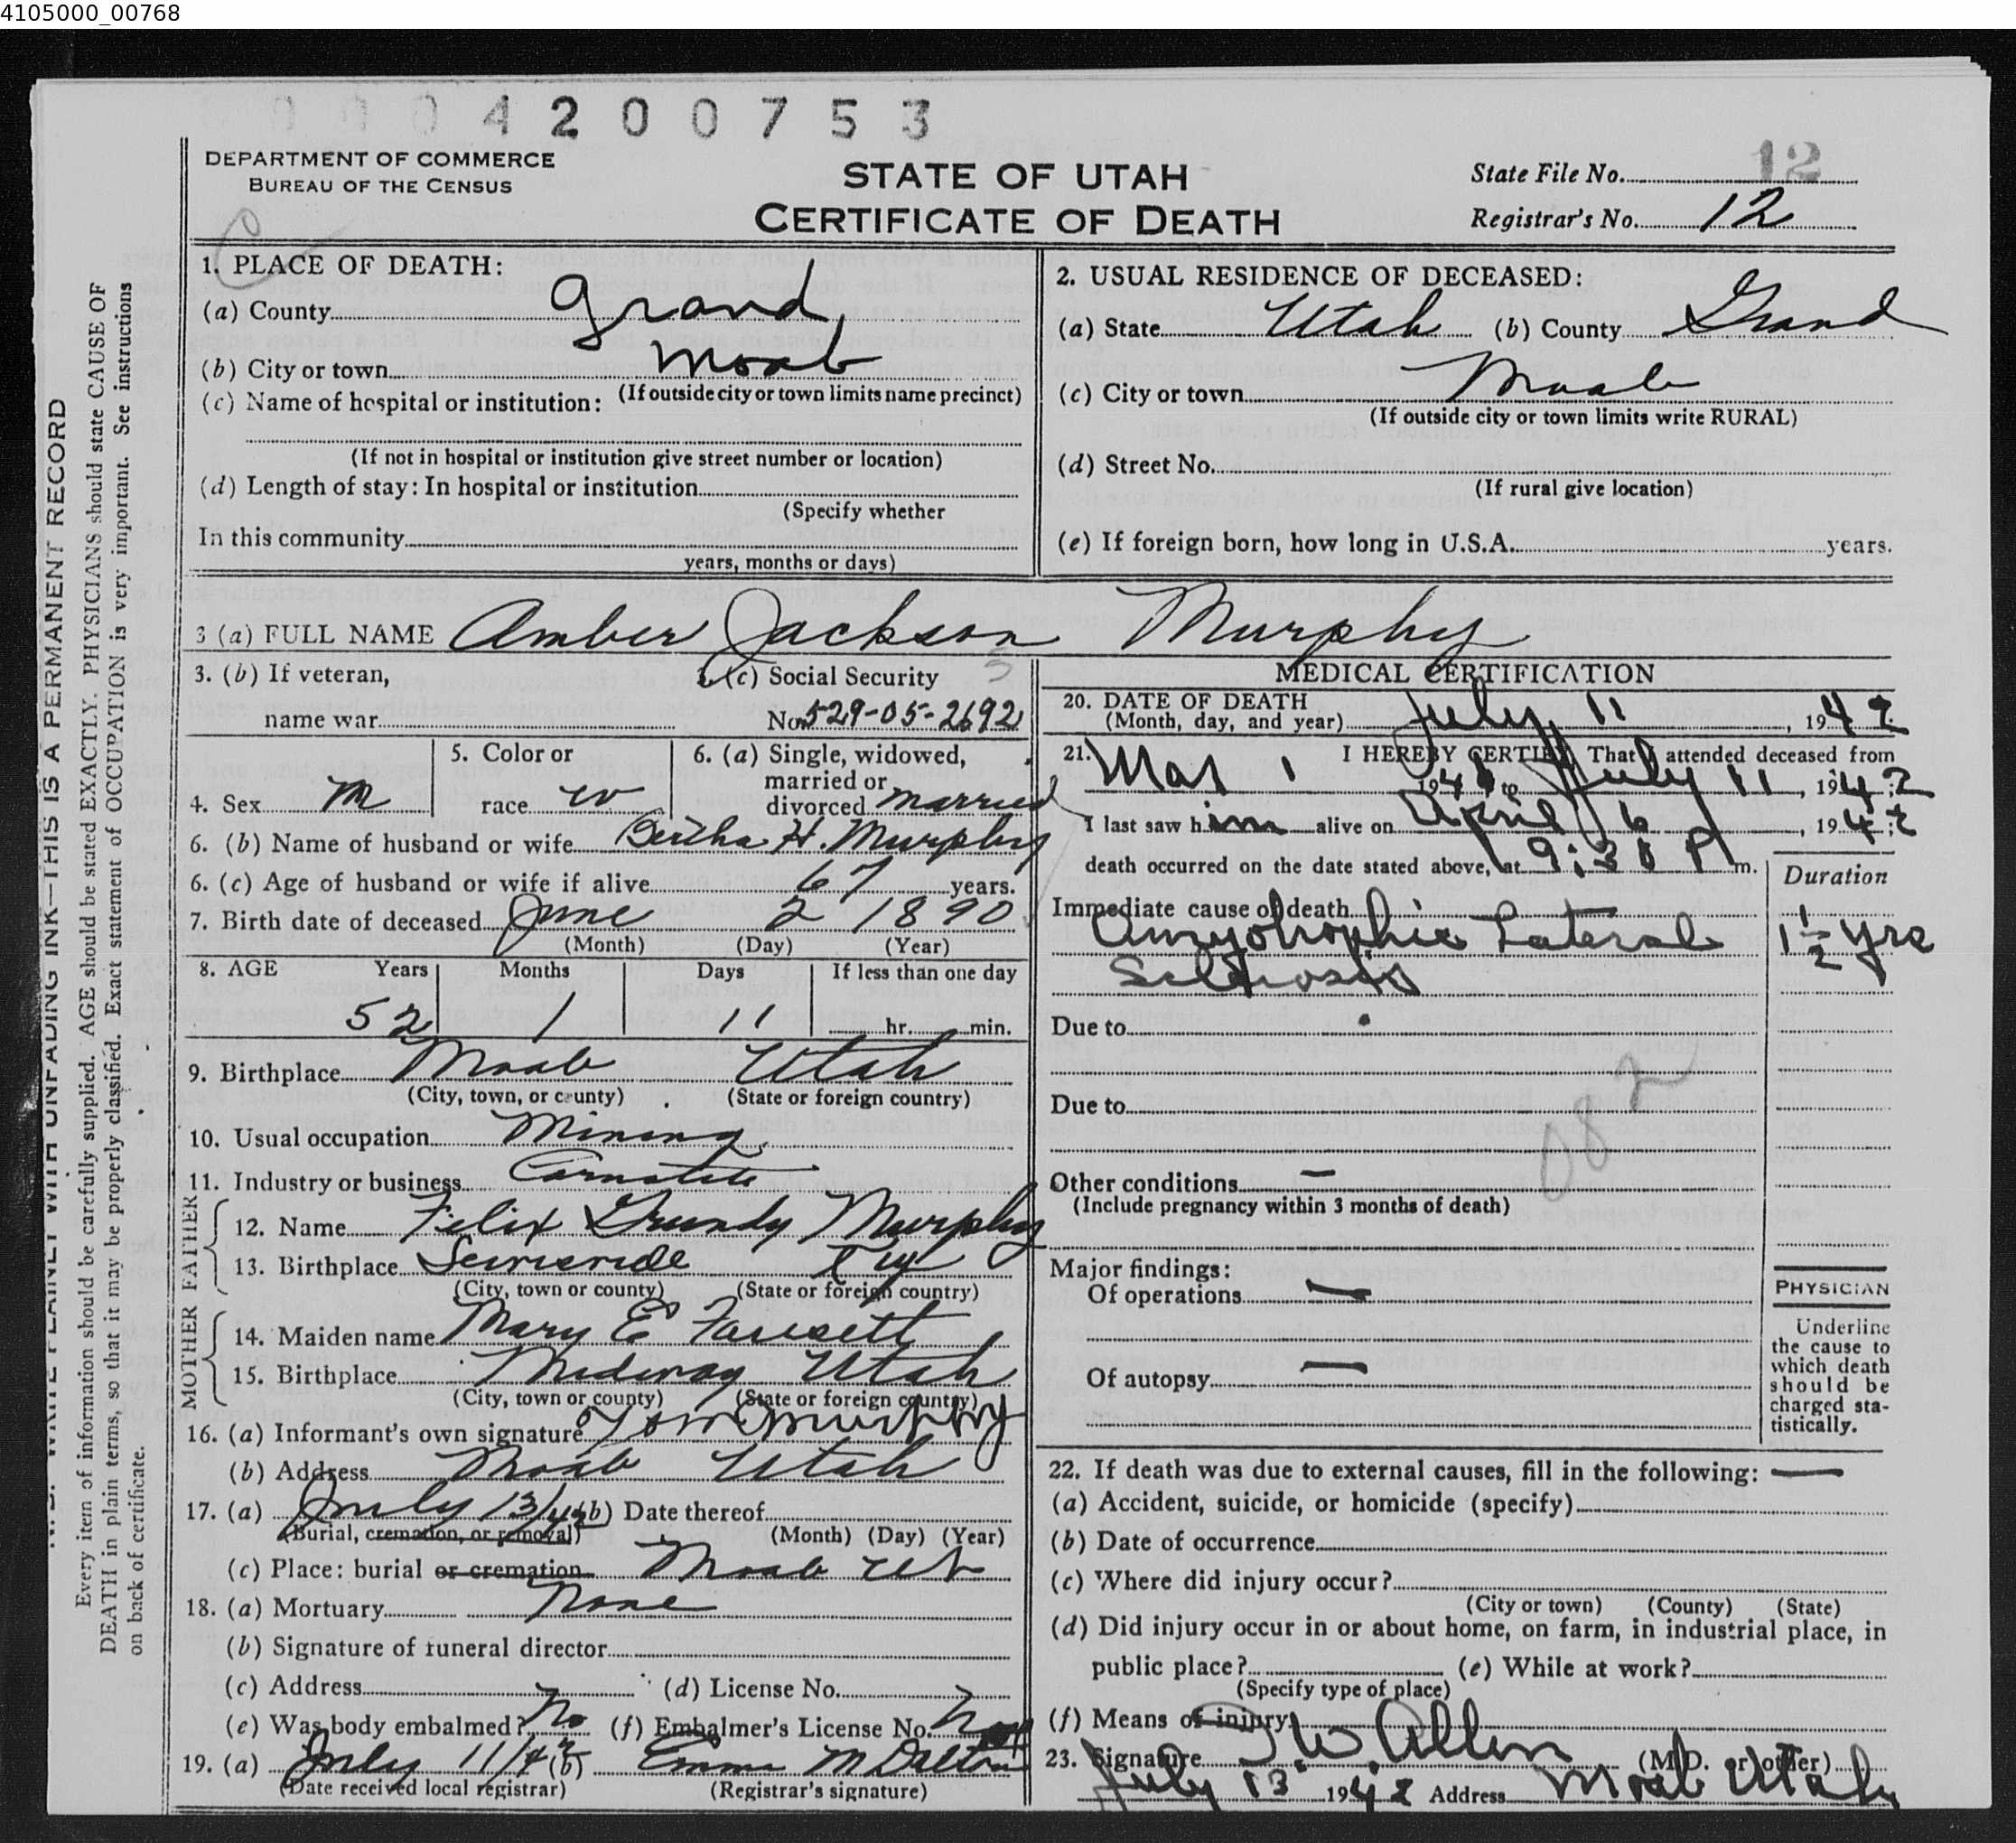 4105000_00768
0004200753
DEPARTMENT OF COMMERCE
BUREAU OF THE CENSUS
STATE OF UTAH
CERTIFICATE OF DEATH
State File No. 12
Registrar's No. 12
N. B. WRITE PLAINLY WITH UNFADING INK—THIS IS A PERMANENT RECORD
Every item of information should be carefully supplied. AGE should be stated EXACTLY. PHYSICIANS should state CAUSE OF
DEATH in plain terms, so that it may be properly classified. Exact statement of OCCUPATION is very important. See instructions
on back of certificate.
1. PLACE OF DEATH:
(a) County Grand,
(b) City or town Moab
(If outside city or town limits name precinct)
(c) Name of hospital or institution:
(If not in hospital or institution give street number or location)
(d) Length of stay: In hospital or institution
(Specify whether
In this community
years, months or days)
2. USUAL RESIDENCE OF DECEASED:
(a) State Utah (b) County Grand
(c) City or town Moab
(If outside city or town limits write RURAL)
(d) Street No.
(If rural give location)
(e) If foreign born, how long in U.S.A. years.
3 (a) FULL NAME Amber Jackson Murphy
3. (b) If veteran,
name war
3. (c) Social Security
No. 529-05-2692
4. Sex M
5. Color or
race W
6. (a) Single, widowed,
married or
divorced married
6. (b) Name of husband or wife Bertha H. Murphy
6. (c) Age of husband or wife if alive 67 years.
7. Birth date of deceased June 2 1890
(Month) (Day) (Year)
8. AGE Years Months Days If less than one day
52 1 11 hr. min.
9. Birthplace Moab Utah
(City, town, or county) (State or foreign country)
10. Usual occupation Mining
11. Industry or business
FATHER
12. Name Felix Grundy Murphy
13. Birthplace Ky
(City, town or county) (State or foreign country)
MOTHER
14. Maiden name Mary E Faucett
15. Birthplace Midway Utah
(City, town or county) (State or foreign country)
16. (a) Informant's own signature Tom Murphy
(b) Address Moab Utah
17. (a) July 13/42 (b) Date thereof
(Burial, cremation, or removal) (Month) (Day) (Year)
(c) Place: burial or cremation Moab Ut
18. (a) Mortuary None
(b) Signature of funeral director
(c) Address (d) License No.
(e) Was body embalmed? No (f) Embalmer's License No.
19. (a) July 11/42 (b) Emma M Dalton
(Date received local registrar) (Registrar's signature)
MEDICAL CERTIFICATION
20. DATE OF DEATH
(Month, day, and year) July 11, 1942
21. I HEREBY CERTIFY That I attended deceased from
Mar 1 1941 to July 11, 1942
I last saw him alive on April 6, 1942
death occurred on the date stated above, at 9:30 P m.
Duration
Immediate cause of death
Amyotrophic Lateral 1 1/2 yrs
Sclerosis
Due to
Due to
082
Other conditions —
(Include pregnancy within 3 months of death)
Major findings:
Of operations —
Of autopsy —
PHYSICIAN
Underline
the cause to
which death
should be
charged sta-
tistically.
22. If death was due to external causes, fill in the following: —
(a) Accident, suicide, or homicide (specify)
(b) Date of occurrence
(c) Where did injury occur?
(City or town) (County) (State)
(d) Did injury occur in or about home, on farm, in industrial place, in
public place? (e) While at work?
(Specify type of place)
(f) Means of injury
23. Signature I. W. Allen (M.D. or other)
July 13 1942 Address Moab Utah